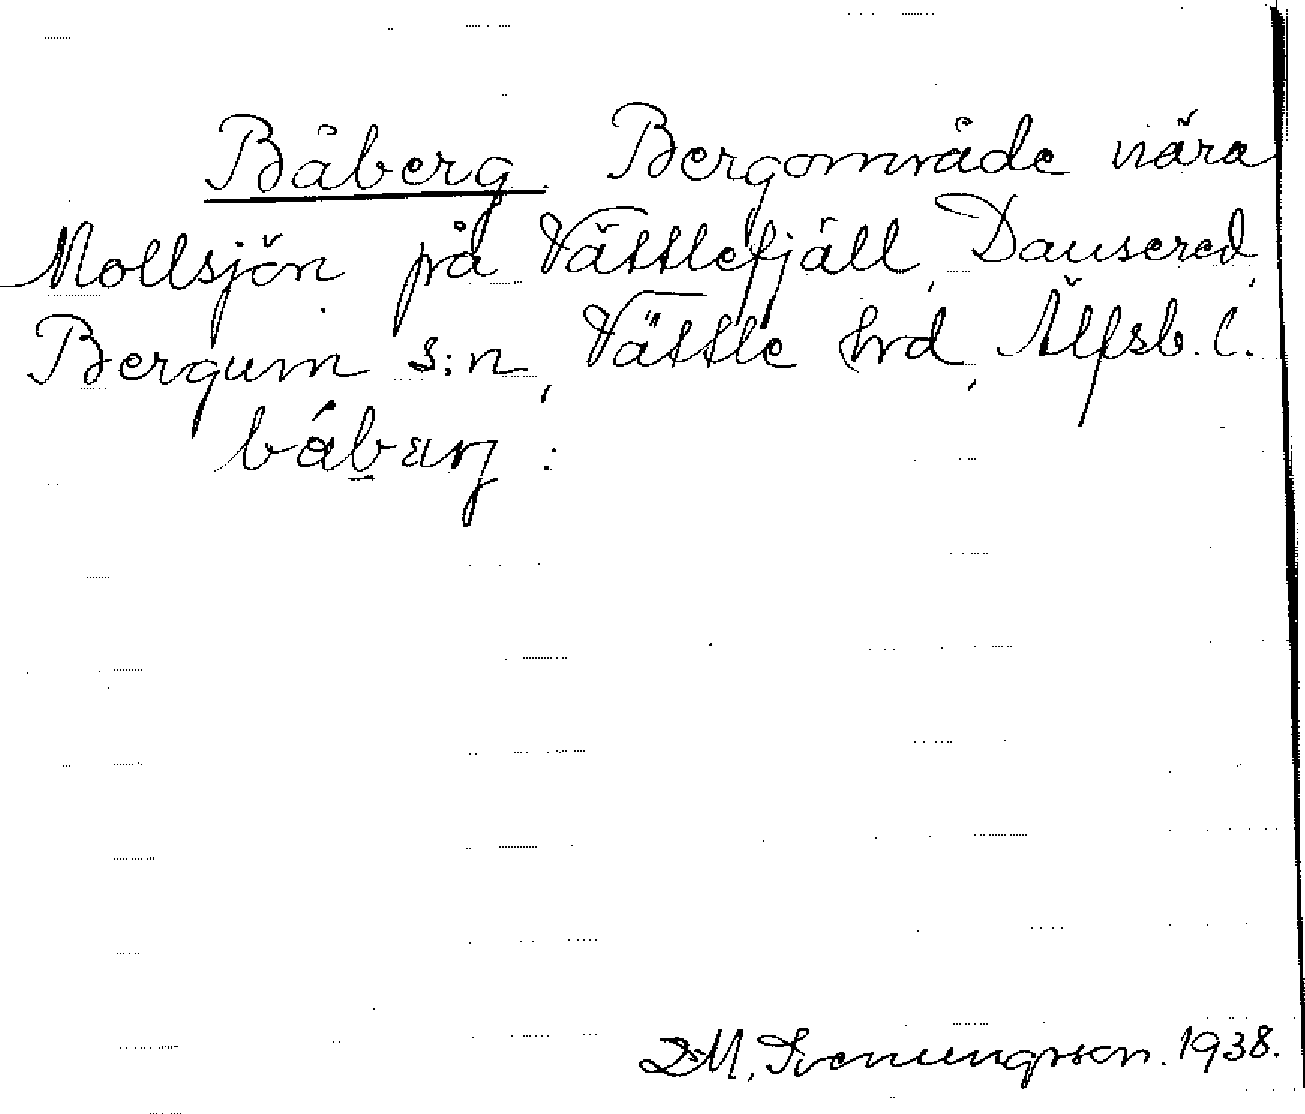 Båberg. Bergområde nära
Mollsjön på Vättlefjäll, Dansered,
Bergum s:n, Vättle hrd, Älfsb. l.
båbærg :
D.M. Svenungsson. 1938.